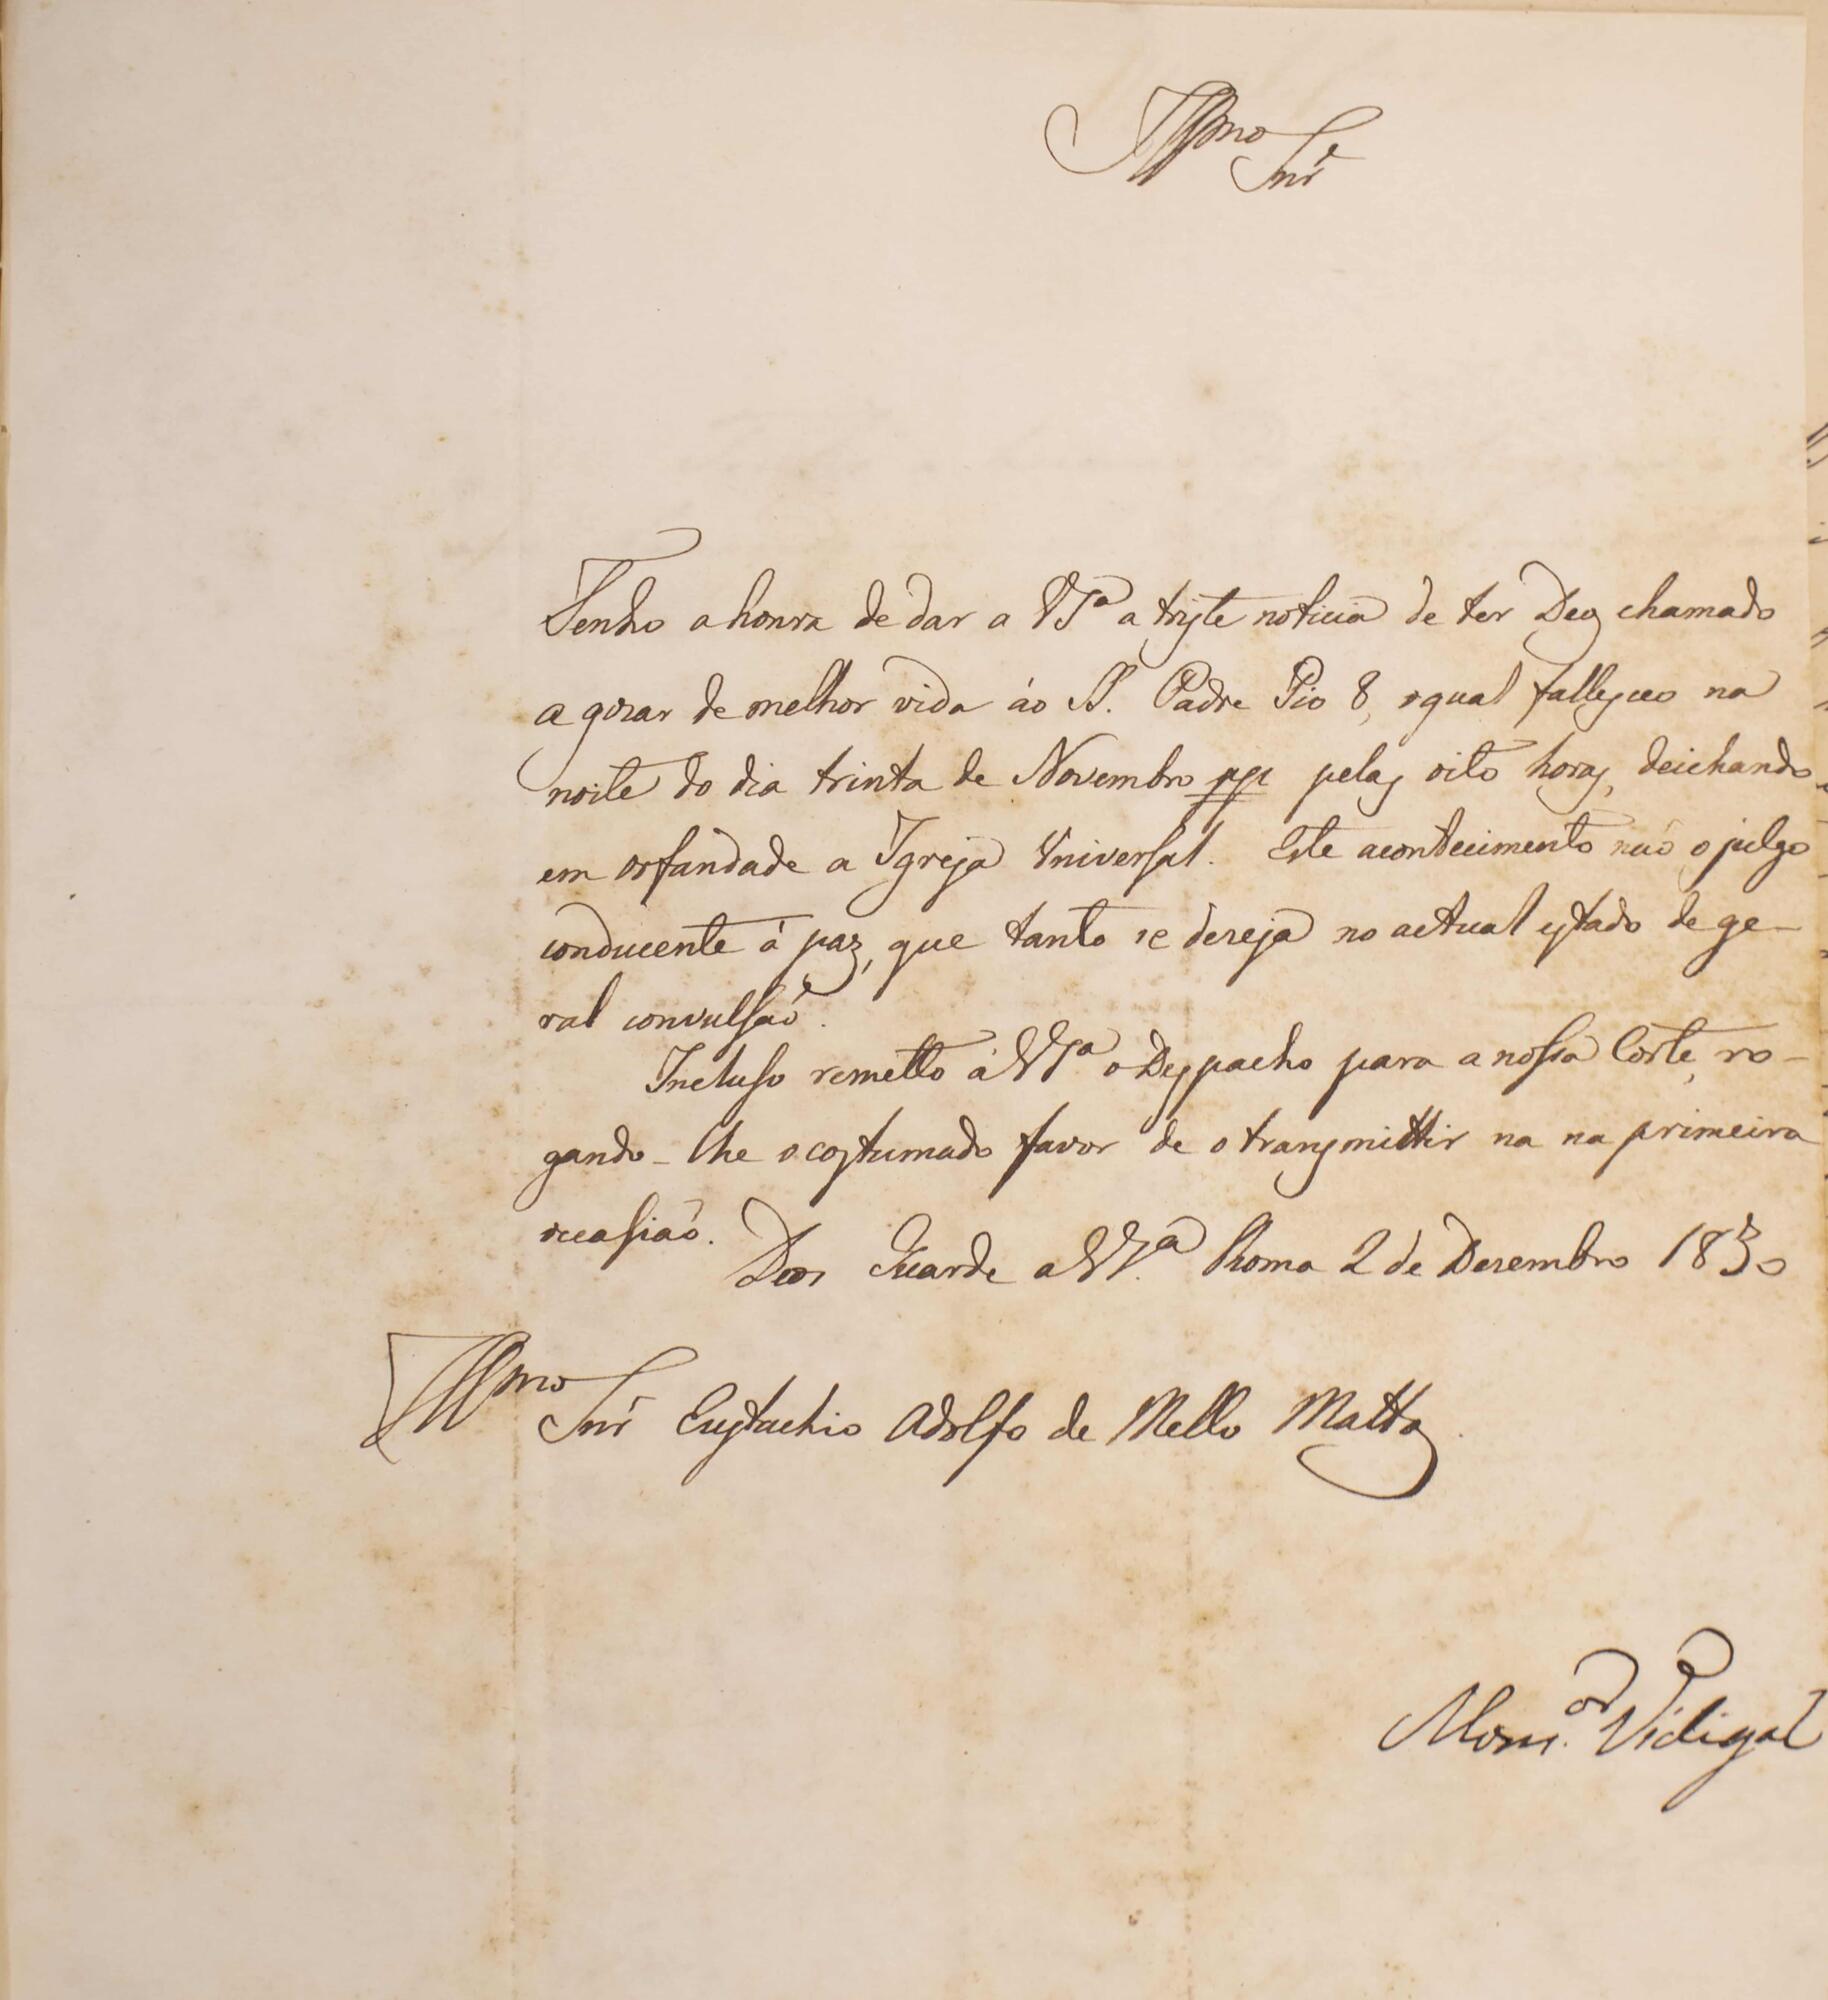 Illmo Snr̃
Tenho a honra de dar a VSª a triste noticia de ter Deos chamado
a gozar de melhor vida áo S. Padre Pio 8, o qual falleceo na
noite do dia trinta de Novembro pp. pelas oito horas, deichando
em orfandade a Igreja Universal. Este acontecimento não o julgo
conducente á paz, que tanto se deseja no actual estado de ge-
ral convulsaõ.
Incluso remetto á VSª o Despacho para a nossa Corte, ro-
gando-lhe o costumado favor de o transmittir na na primeira
occasiaõ.
Deos Guarde a VSª Roma 2 de Dezembro 1830
Illmo Snr̃ Eustachio Adolfo de Mello Mattos.
Monsor. Vidigal